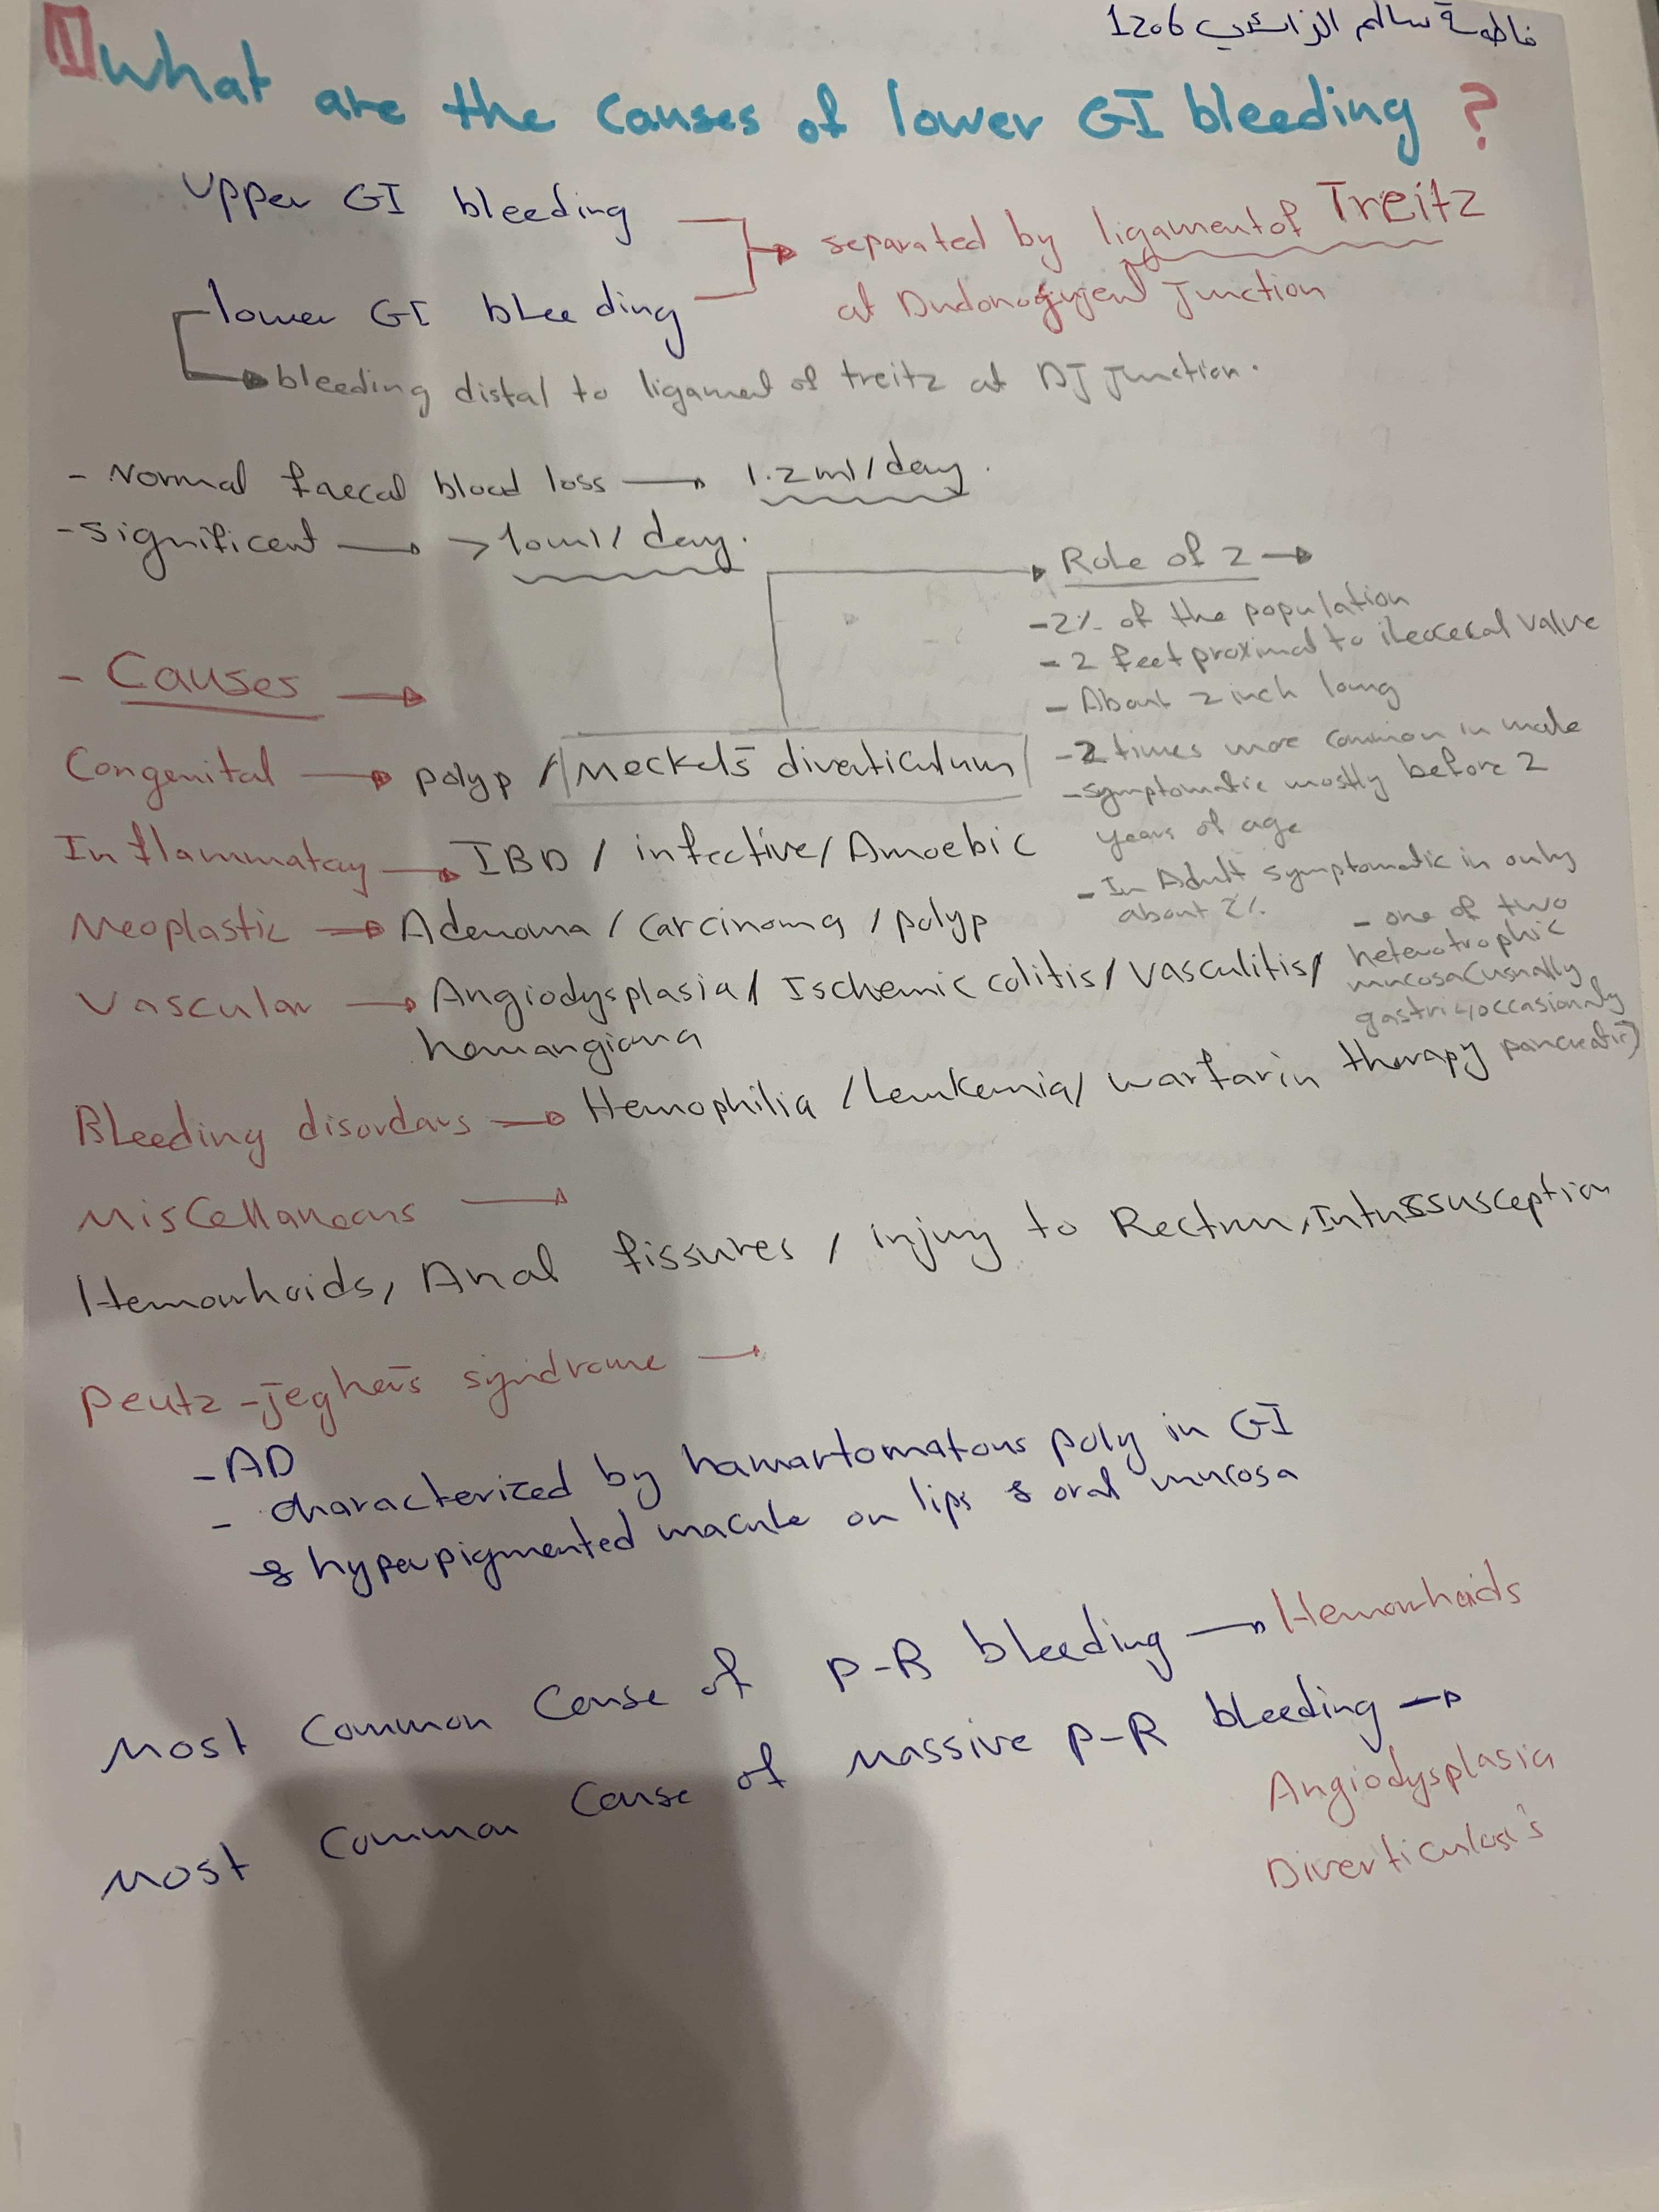 فاطمة سالم الزائدي 1206
1 What are the causes of lower GI bleeding ?
Upper GI bleeding
separated by ligament of Treitz
at Dudonojujenl Junction
lower GI bleeding
bleeding distal to ligament of treitz at DJ junction.
- Normal faecal blood loss → 1.2 ml / day.
- significant → > 10 ml / day.
Role of 2 →
- 2% of the population
- 2 feet proximal to ileocecal valve
- About 2 inch long
- 2 times more common in male
- symptomatic mostly before 2
years of age
- In Adult symptomatic in only
about 2%
- one of two
heterotrophic
mucosa (usually
gastric, occasionally
pancreatic)
- Causes →
Congenital → polyp / Meckel's diverticulum /
Inflammatory → IBD / infective / Amoebic
Neoplastic → Adenoma / carcinoma / polyp
Vascular → Angiodysplasia / Ischemic colitis / vasculitis /
hemangioma
Bleeding disorders → Hemophilia / Leukemia / warfarin therapy
Miscellaneous →
Hemorrhoids, Anal fissures / injury to Rectum, Intussusception
Peutz-jegher's syndrome →
- AD
- characterized by hamartomatous poly in GI
& hyperpigmented macule on lips & oral mucosa
Most common cause of P-R bleeding → Hemorrhoids
Most common cause of massive P-R bleeding →
Angiodysplasia
Diverticulosis